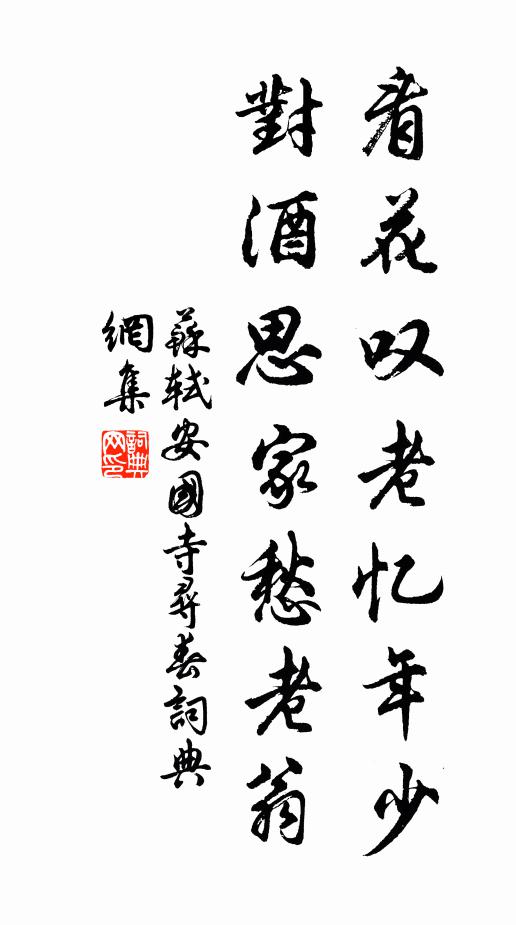 看花叹老忆年少
對酒思家愁老翁
蘇軾安國寺尋春詞典
網集
詞典網印